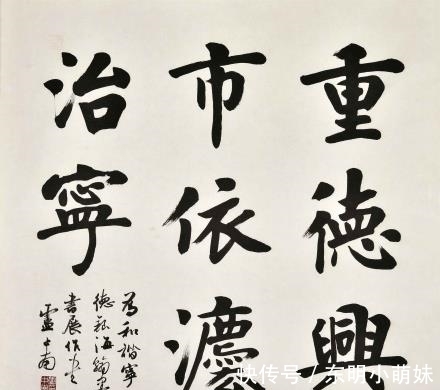 重德興
市依灋
治寧
為和諧寧
德
書展作
盧中南
快传号 / 东明小萌妹